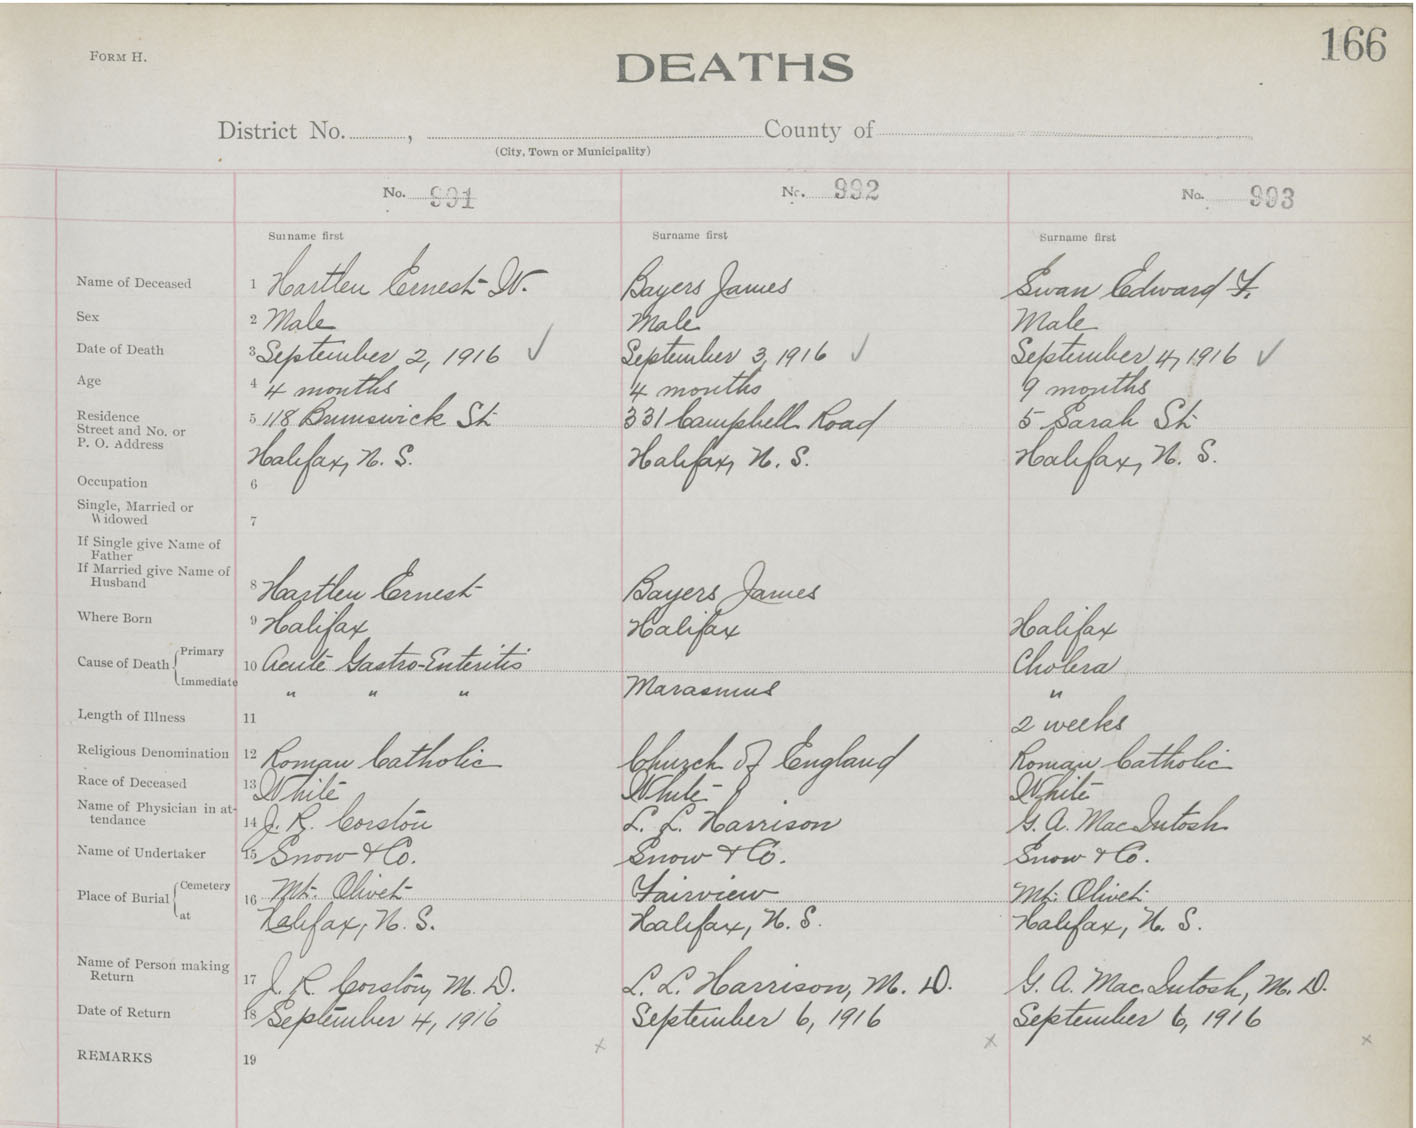 FORM H.
DEATHS
166
District No. , County of
(City, Town or Municipality)
No. 991 No. 992 No. 993
Surname first Surname first Surname first
Name of Deceased 1 Hartlen Ernest W. Bayers James Swan Edward F.
Sex 2 Male Male Male
Date of Death 3 September 2, 1916 ✓ September 3, 1916 ✓ September 4, 1916 ✓
Age 4 4 months 4 months 9 months
Residence 5 118 Brunswick St. 331 Campbell Road 5 Sarah St.
Street and No. or
P. O. Address Halifax, N. S. Halifax, N. S. Halifax, N. S.
Occupation 6
Single, Married or
Widowed 7
If Single give Name of
Father
If Married give Name of
Husband 8 Hartlen Ernest Bayers James
Where Born 9 Halifax Halifax Halifax
Cause of Death Primary 10 Acute Gastro-Enteritis Cholera
Immediate " " " Marasmus "
Length of Illness 11 2 weeks
Religious Denomination 12 Roman Catholic Church of England Roman Catholic
Race of Deceased 13 White White White
Name of Physician in at-
tendance 14 J. R. Corston L. L. Harrison G. A. MacIntosh
Name of Undertaker 15 Snow & Co. Snow & Co. Snow & Co.
Place of Burial Cemetery 16 Mt. Olivet Fairview Mt. Olivet
at Halifax, N. S. Halifax, N. S. Halifax, N. S.
Name of Person making
Return 17 J. R. Corston, M. D. L. L. Harrison, M. D. G. A. MacIntosh, M. D.
Date of Return 18 September 4, 1916 September 6, 1916 September 6, 1916
REMARKS 19 x x x